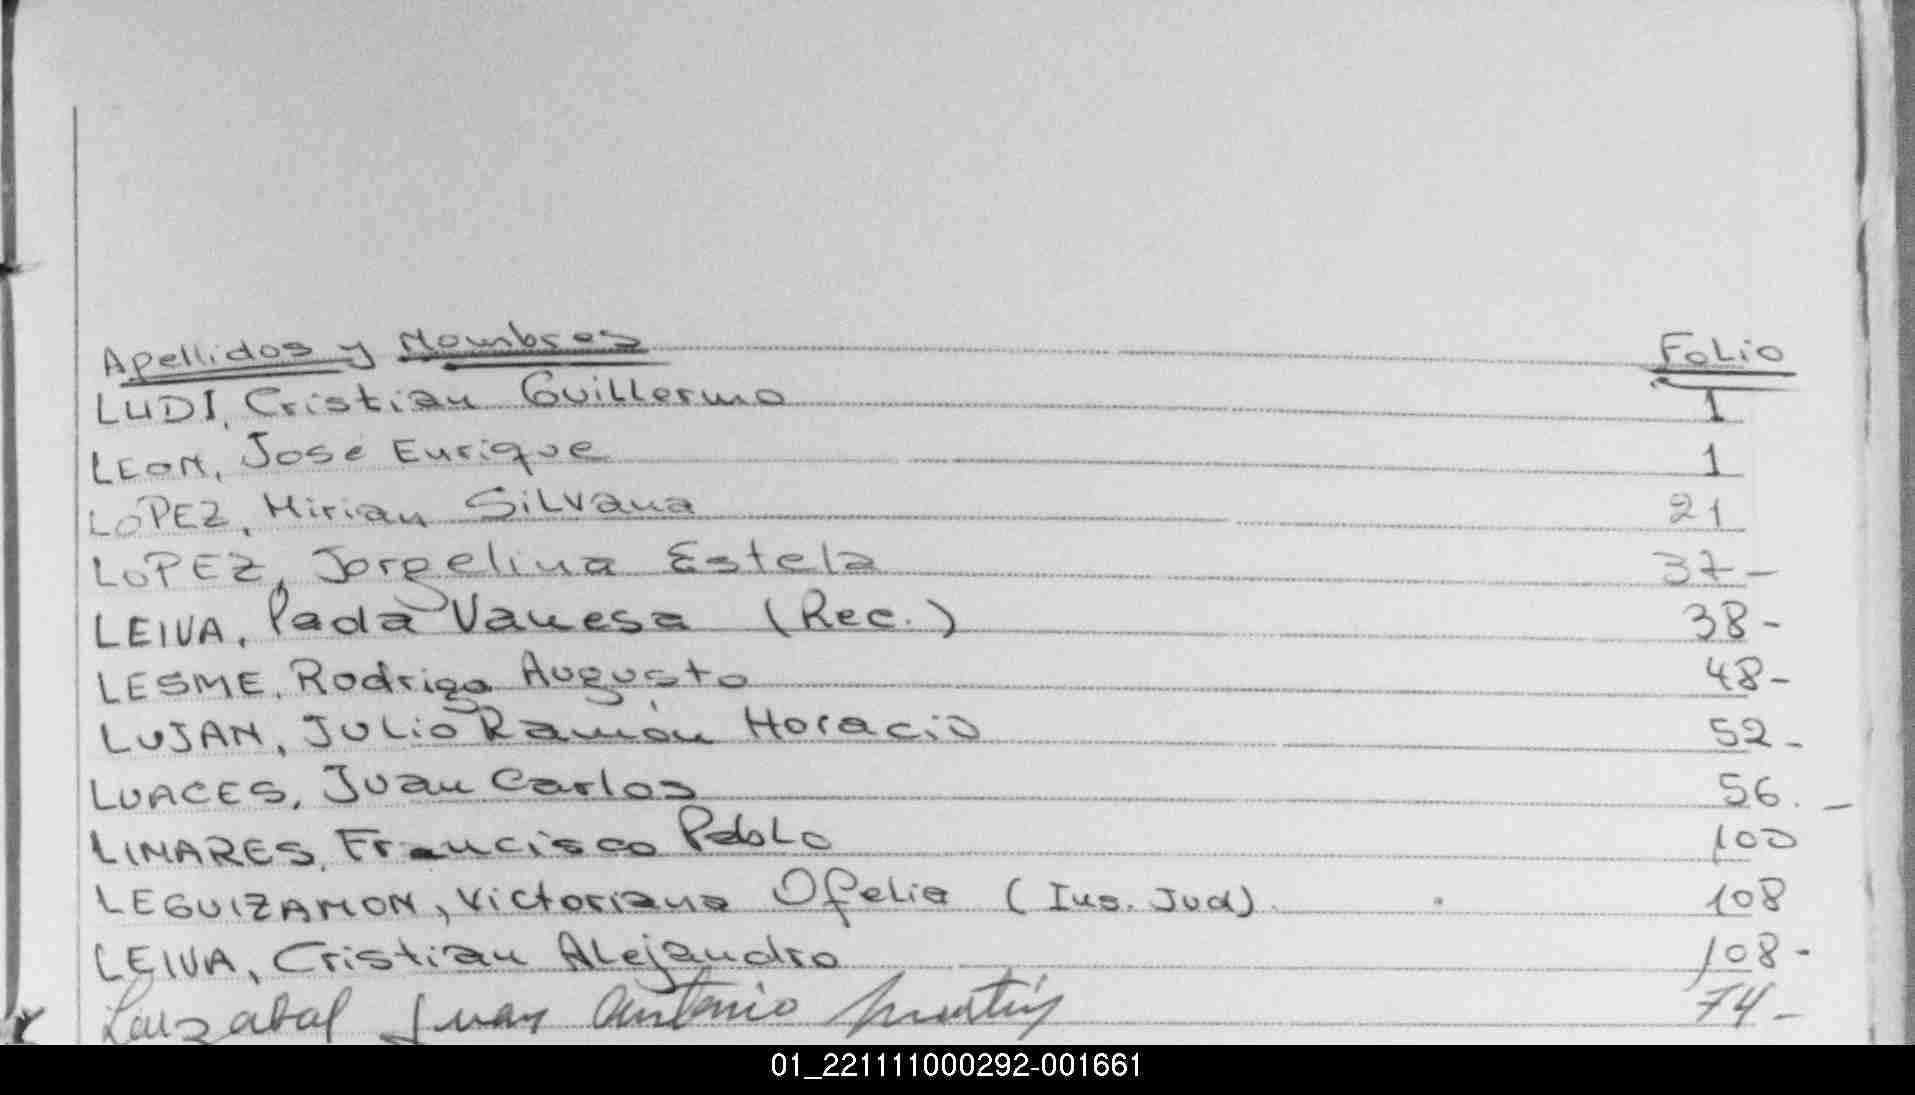 Apellidos y Nombres Folio
LUDI, Cristian Guillermo 1
LEON, José Enrique 1
LOPEZ, Mirian Silvana 21
LOPEZ, Jorgelina Estela 37-
LEIVA, Vanesa (Rec.) 38-
LESME, Rodrigo Augusto 48-
LUJAN, Julio Ramón Horacio 52-
LUACES, Juan Carlos 56.-
LINARES, Francisco Pablo 100
LEGUIZAMON, Victoriana Ofelia (Ins. Jud). 108
LEIVA, Cristian Alejandro 108-
Juan Antonio Martín 74-
01_221111000292-001661